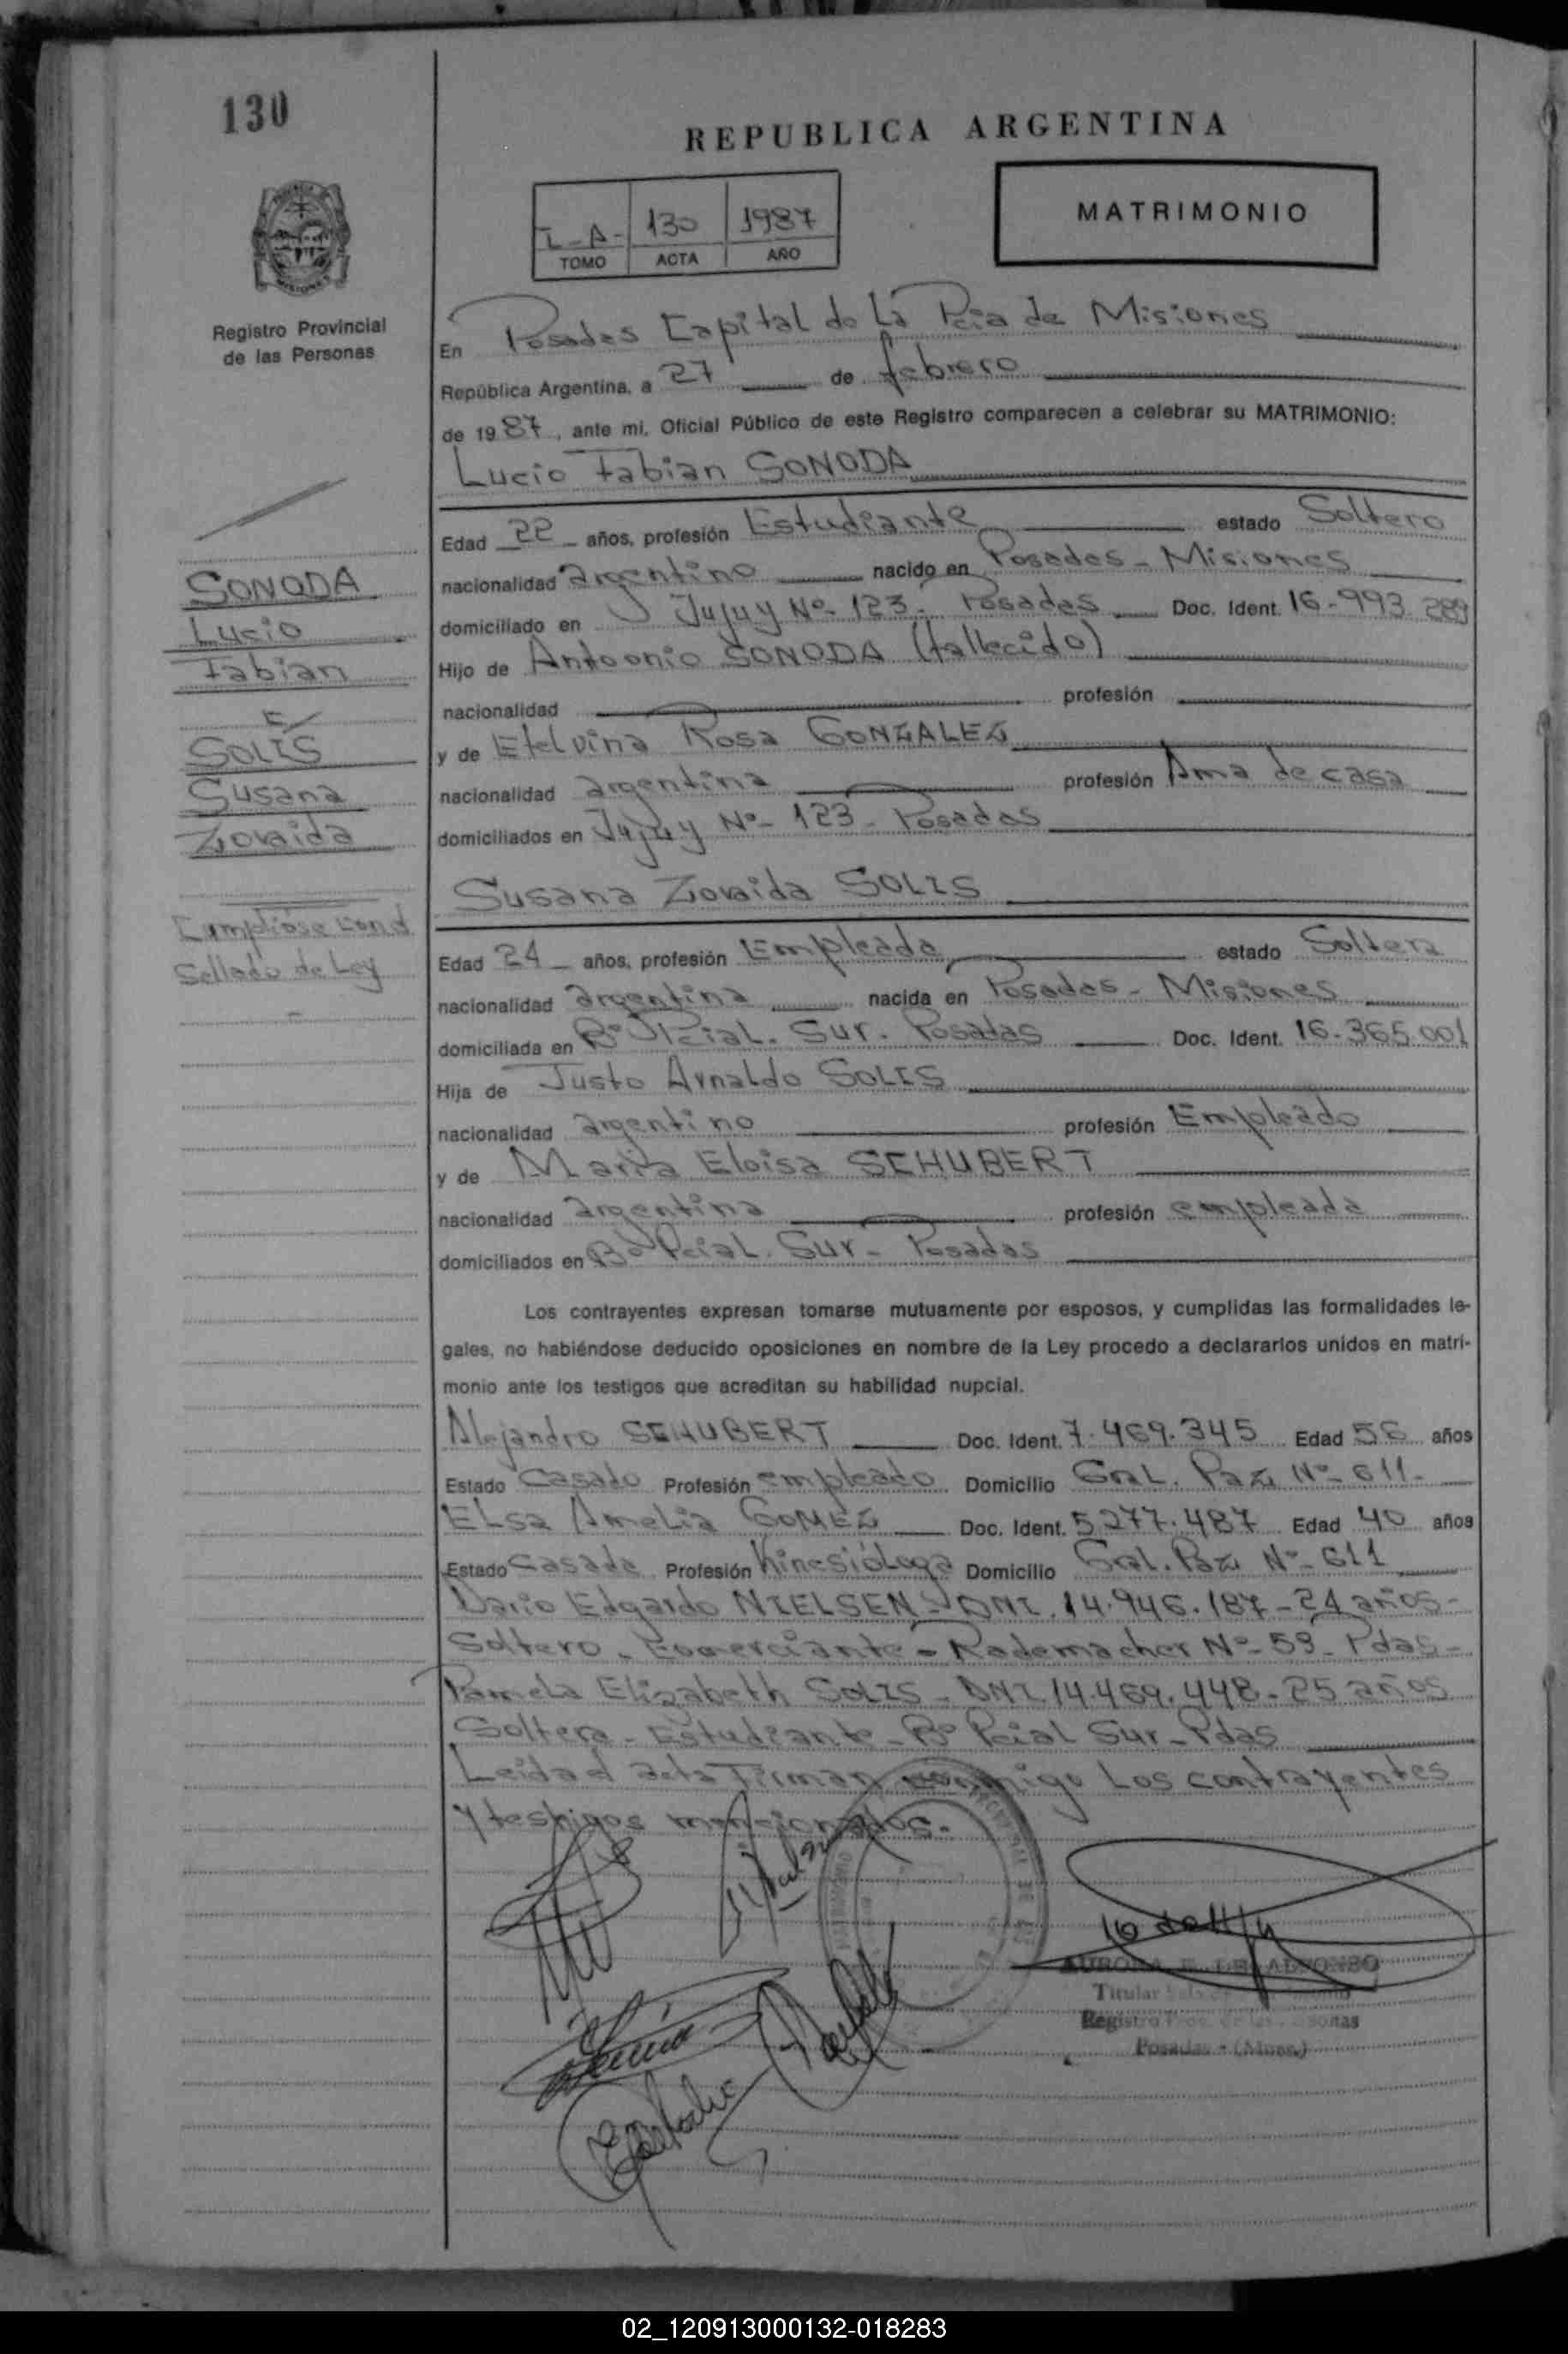 130
REPUBLICA ARGENTINA
I-A- 130 1987
TOMO ACTA AÑO
MATRIMONIO
Registro Provincial
de las Personas
En Posadas Capital de la Pcia de Misiones
República Argentina, a 27 de febrero
de 19 87, ante mi, Oficial Público de este Registro comparecen a celebrar su MATRIMONIO:
Lucio Fabian SONODA
Edad 22 años, profesión Estudiante estado Soltero
nacionalidad argentino nacido en Posadas - Misiones
domiciliado en Jujuy Nº 123. Posadas Doc. Ident. 16-993.289
Hijo de Antoonio SONODA (fallecido)
nacionalidad profesión
y de Etelvina Rosa GONZALEZ
nacionalidad argentina profesión Ama de casa
domiciliados en Jujuy Nº- 123 - Posadas
Susana Zoraida SOLIS
Edad 24 años, profesión Empleada estado Soltera
nacionalidad argentina nacida en Posadas - Misiones
domiciliada en Bº Pcial. Sur. Posadas Doc. Ident. 16-365.001
Hija de Justo Arnaldo SOLIS
nacionalidad argentino profesión Empleado
y de María Eloisa SCHUBERT
nacionalidad argentina profesión empleada
domiciliados en Bº Pcial. Sur - Posadas
SONODA
Lucio
Fabian
E/
SOLIS
Susana
Zoraida
Cumpliose con el
Sellado de Ley
Los contrayentes expresan tomarse mutuamente por esposos, y cumplidas las formalidades le-
gales, no habiéndose deducido oposiciones en nombre de la Ley procedo a declararlos unidos en matri-
monio ante los testigos que acreditan su habilidad nupcial.
Alejandro SCHUBERT Doc. Ident. 7.469.345 Edad 56 años
Estado Casado Profesión empleado Domicilio Gral. Paz Nº- 611-
Elsa Amelia GOMEZ Doc. Ident. 5277.487 Edad 40 años
Estado Casada Profesión Kinesióloga Domicilio Gral. Paz Nº- 611
Dario Edgardo NIELSEN - DNI. 14.946.187 - 24 años-
Soltero - Comerciante - Rademacher Nº- 59 - Pdas-
Pamela Elizabeth SOLIS - DNI. 14.469.448 - 25 años
Soltera - Estudiante - Bº Pcial Sur - Pdas
Leida el acta firman conmigo los contrayentes
y testigos mencionados.
AURORA E. DE ALFONSO
Titular
Registro Prov. de las Personas
Posadas - (Mnes.)
02_120913000132-018283